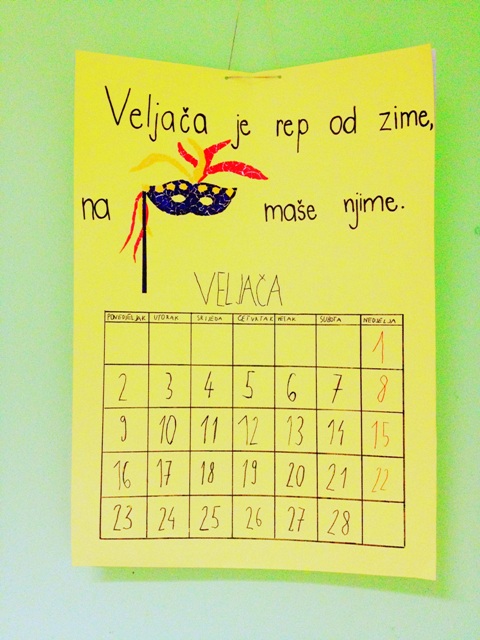 Veljača je rep od zime,
na maše njime.
VELJAČA
PONEDJELJAK UTORAK SRIJEDA ČETVRTAK PETAK SUBOTA NEDJELJA
1
2 3 4 5 6 7 8
9 10 11 12 13 14 15
16 17 18 19 20 21 22
23 24 25 26 27 28